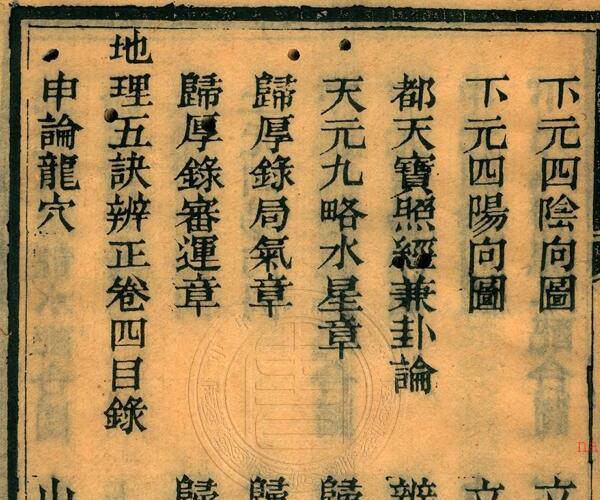 下元四陰向圖
下元四陽向圖
都天寶照經兼卦論
天元九略水星章
歸厚錄局氣章
歸厚錄審運章
地理五訣辨正卷四目錄
申論龍穴